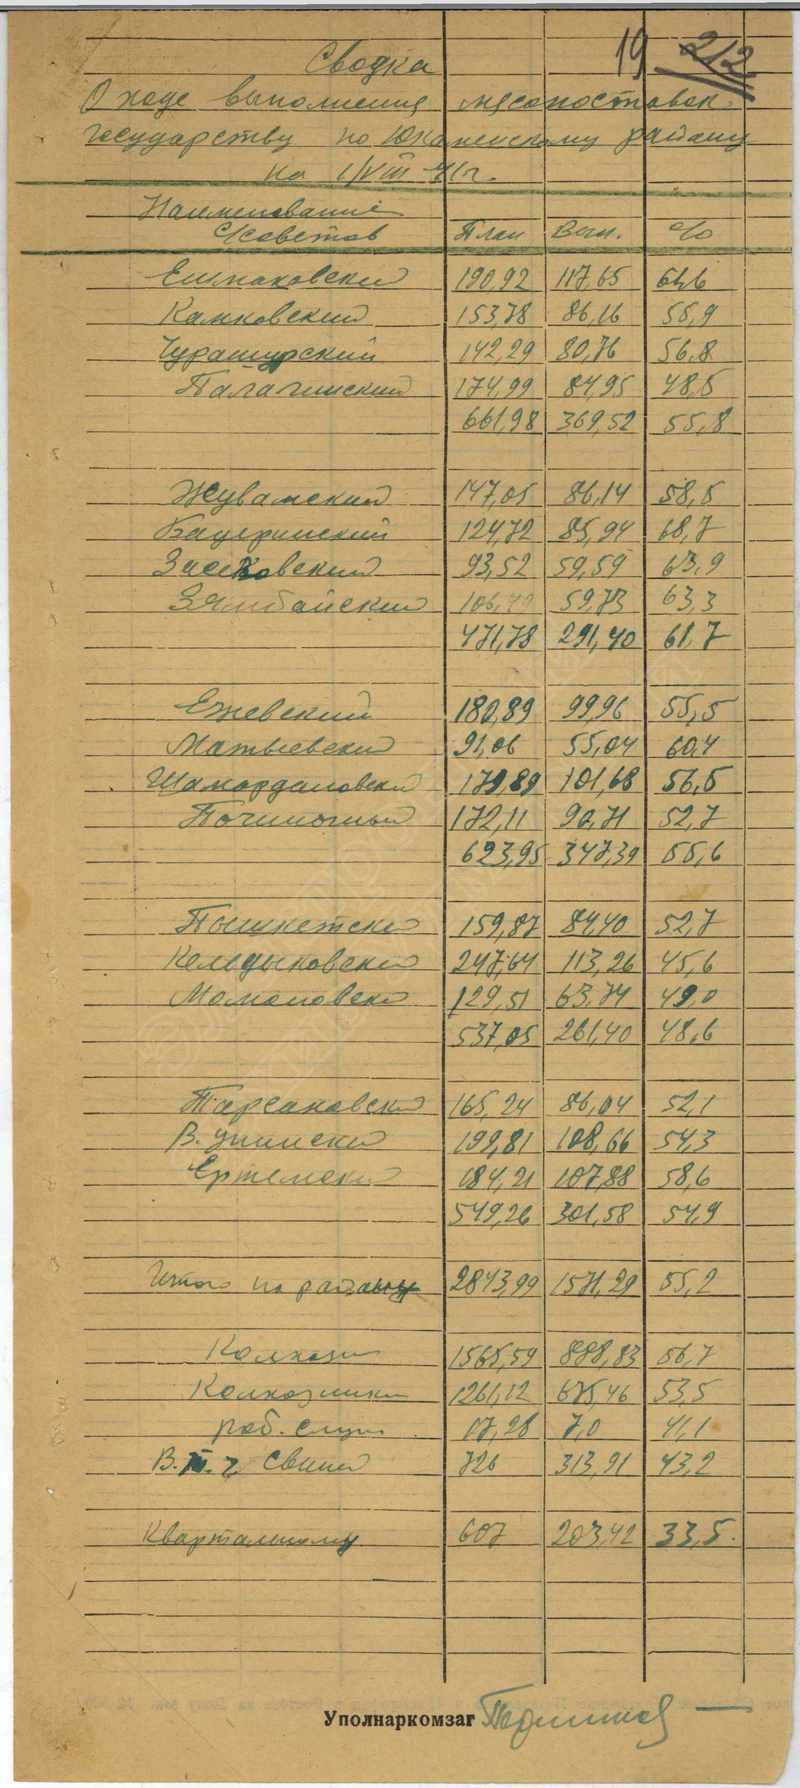 19 212
Сводка
О ходе выполнения мясопоставок
государству по Юкаменскому району
на 1/VIII-41г.
Наименование
С/советов План Вып. %
Ешмаковский 190,92 117,65 61,6
Камковский 153,78 86,16 55,9
Чурашурский 142,29 80,76 56,8
Палагинский 174,99 84,95 48,5
661,98 369,52 55,8
Жувамский 147,05 86,14 58,5
Бадеринский 124,72 85,94 68,7
Засековский 93,52 59,59 63,9
Зямбайский 106,49 59,73 63,3
471,78 291,40 61,7
Ежевский 180,89 99,96 55,5
Матвеевский 91,06 55,04 60,4
Шамардановский 179,89 101,68 56,5
Починочный 172,11 90,71 52,7
623,95 347,39 55,6
Пышкетский 159,87 84,40 52,7
Келдыковский 247,64 113,26 45,6
Момоловский 129,51 63,74 49,0
537,05 261,40 48,6
Тарсаковский 165,24 86,04 52,1
В. Унинский 199,81 108,66 54,3
Ертемский 184,21 107,88 58,6
549,26 301,58 54,9
Итого по району 2843,99 1571,29 55,2
Колхозы 1565,59 888,83 56,7
Колхозники 1261,12 675,46 53,5
раб. служ. 17,28 7,0 41,1
В.т.ч свиней 726 313,91 43,2
Квартальному 607 203,42 33,5.
Уполнаркомзаг